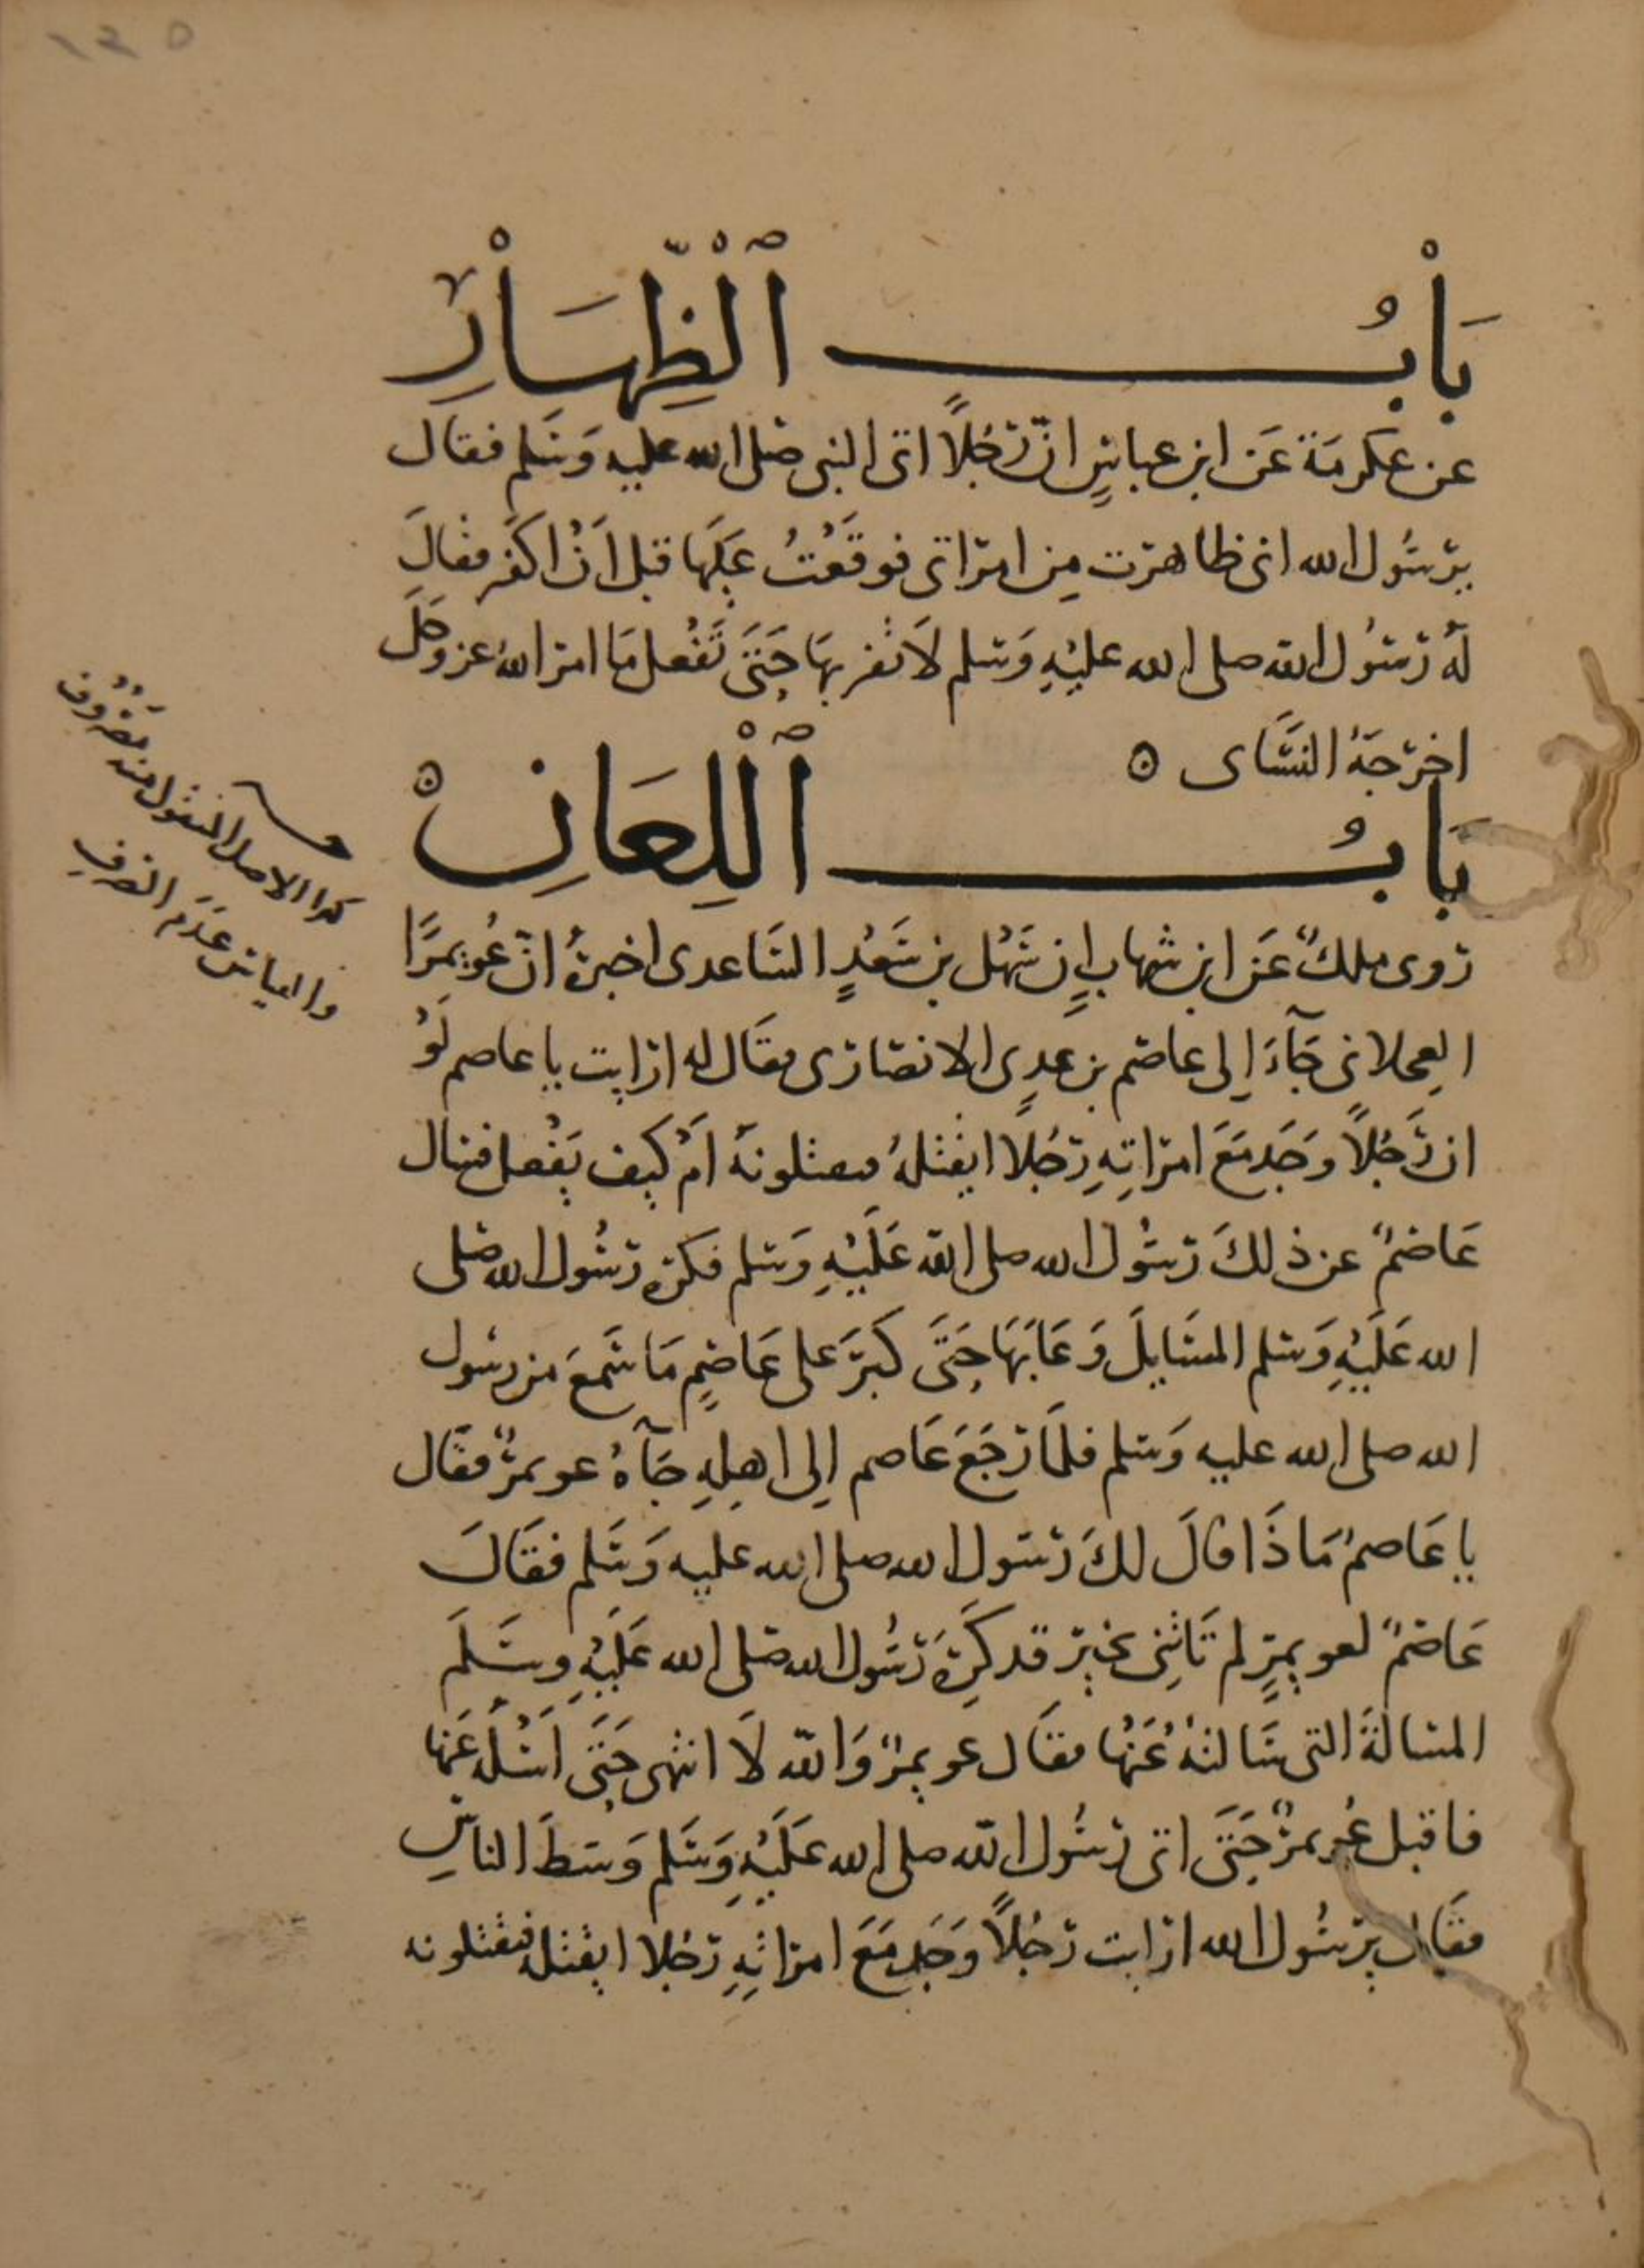 ١٤٥
بَابُ ٱلْظِّهَارِ
عن عكرمَة عَن ابن عباسٍ انّ رَجُلاً اتى النبى صلى الله عليه وَسَلم فقال
يرسُول الله انى ظاهرت مِن امراتى فوقَعْتُ عَلَيها قبل اَنْ اكَفر فقالَ
لَهُ رَسُول الله صلى الله عليْهِ وَسلم لاَ تقربهَا حَتىَّ تَفْعل مَا امر الله عز وَجَلَّ
اخرجَهُ النسَّاى ه
بَابُ ٱللِعَانِ
روى ملكٌ عَن ابن شهابٍ اِن سَهْل بن سَعْدٍ السَاعدى اخبرهُ انّ عُويمرًا
العجلانى جَآءَ اِلى عاصم بن عدِىٍ الانصارى فقَال له ارايت يا عاصم لَوْ
ان رَجُلاً وَجَد مَعَ امرَاتِهِ رَجُلا ايقتلهُ فيقتلونهُ اَمْ كيف يَفْعل فسال
عَاصمٌ عن ذلكَ رسُول الله صلى الله عَلَيْهِ وَسلم فكره رسُول الله صَلى
الله عَلَيْهِ وَسلم المسَايلَ وَعَابَهَا حَتىَّ كَبرَ على عَاصِمٍ مَا سَمعَ من رسُول
الله صلى الله عليه وَسلم فلمَا رَجَعَ عَاصم اِلى اهلِهِ جَآهُ عويمرٌ فقَال
يا عَاصمُ مَاذَا قالَ لكَ رَسول الله صلى الله عليه وَسَلم فقَالَ
عَاصمٌ لعويمرٍ لم تَاتِنى بخيرٍ قد كَرِهَ رَسُول الله صَلى الله عَلَيْهِ وسَلَّمَ
المسالةَ التى سَالتهُ عَنْها فقَال عويمرٌ وَالله لاَ انتهى حَتىَّ اَسْلَهُ عَنها
فاقبل عُويمرٌ حَتىَّ اتى رسُول الله صلى الله عَلَيْهِ وَسَلم وَسَطَ الناسِ
فقَال يرسُول الله ارايت رَجُلاً وَجَد مَعَ امراتِهِ رَجُلا ايقتله فيقتلونه
كذا الاصل المنقول منه مصرُوف
والقياس عدَم الصرف